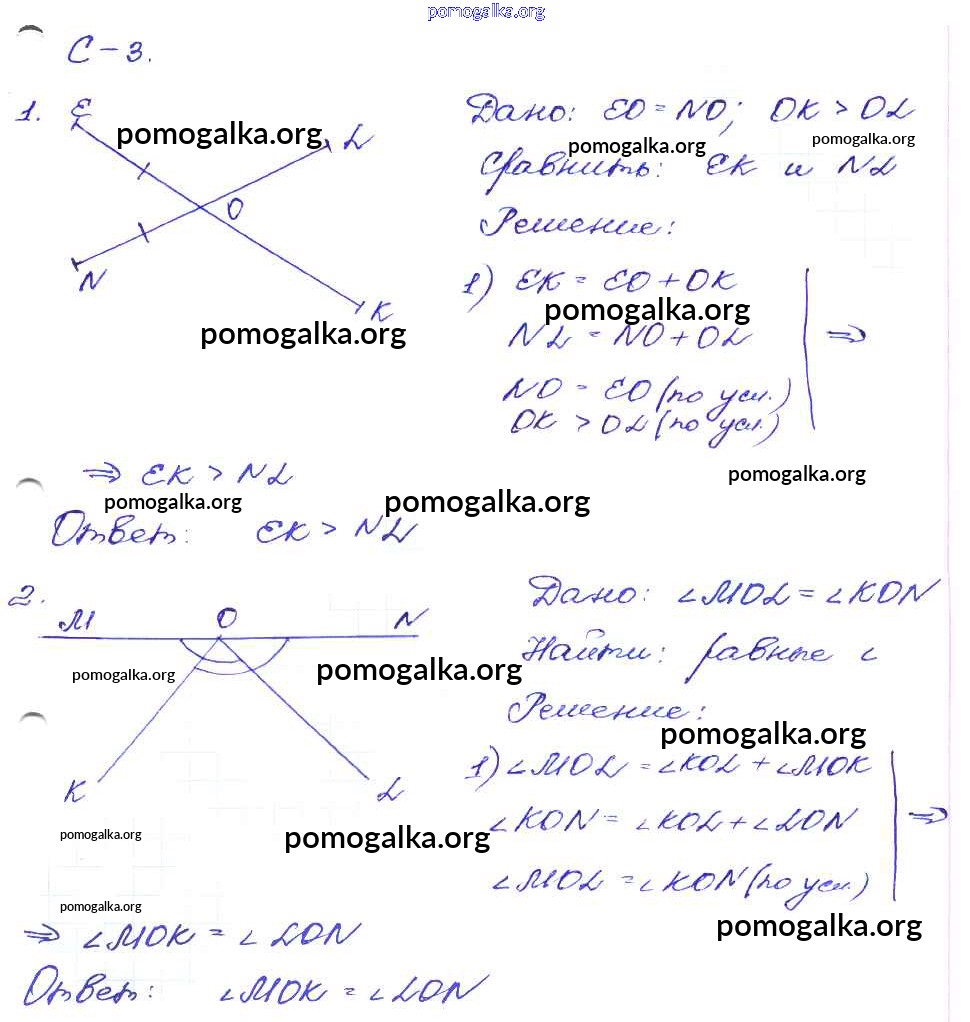 pomogalka.org
С-3.
1.
E
L
O
N
K
pomogalka.org
pomogalka.org
Дано: EO = NO; OK > OL
pomogalka.org
pomogalka.org
Сравнить: EK и NL
Решение:
1) EK = EO + OK
pomogalka.org
NL = NO + OL
⇒
NO = EO (по усл.)
OK > OL (по усл.)
pomogalka.org
⇒ EK > NL
pomogalka.org
pomogalka.org
Ответ: EK > NL
2.
M
O
N
K
L
pomogalka.org
pomogalka.org
pomogalka.org
pomogalka.org
Дано: ∠MOL = ∠KON
Найти: равные ∠
Решение:
pomogalka.org
1) ∠MOL = ∠KOL + ∠MOK
∠KON = ∠KOL + ∠LON
⇒
∠MOL = ∠KON (по усл.)
pomogalka.org
pomogalka.org
⇒ ∠MOK = ∠LON
Ответ: ∠MOK = ∠LON